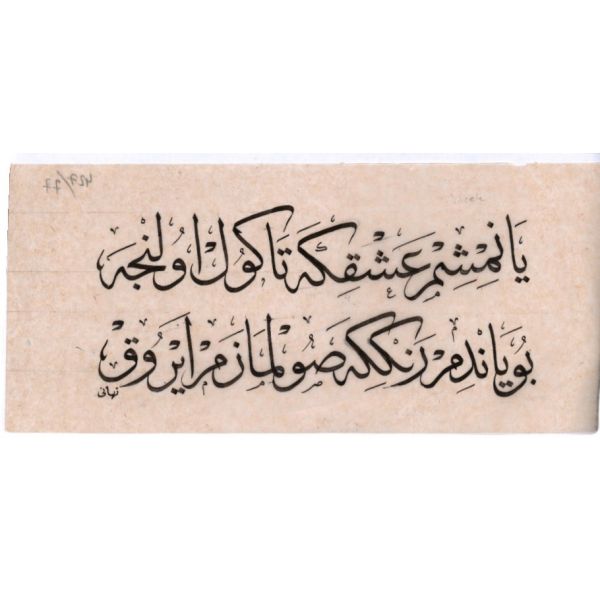 یَانمِشِم عَشقِڭَه تَا كُول اولُنجَه
بُویَاندِم رَنككِه صُولمازم ایرُوق
نهانی